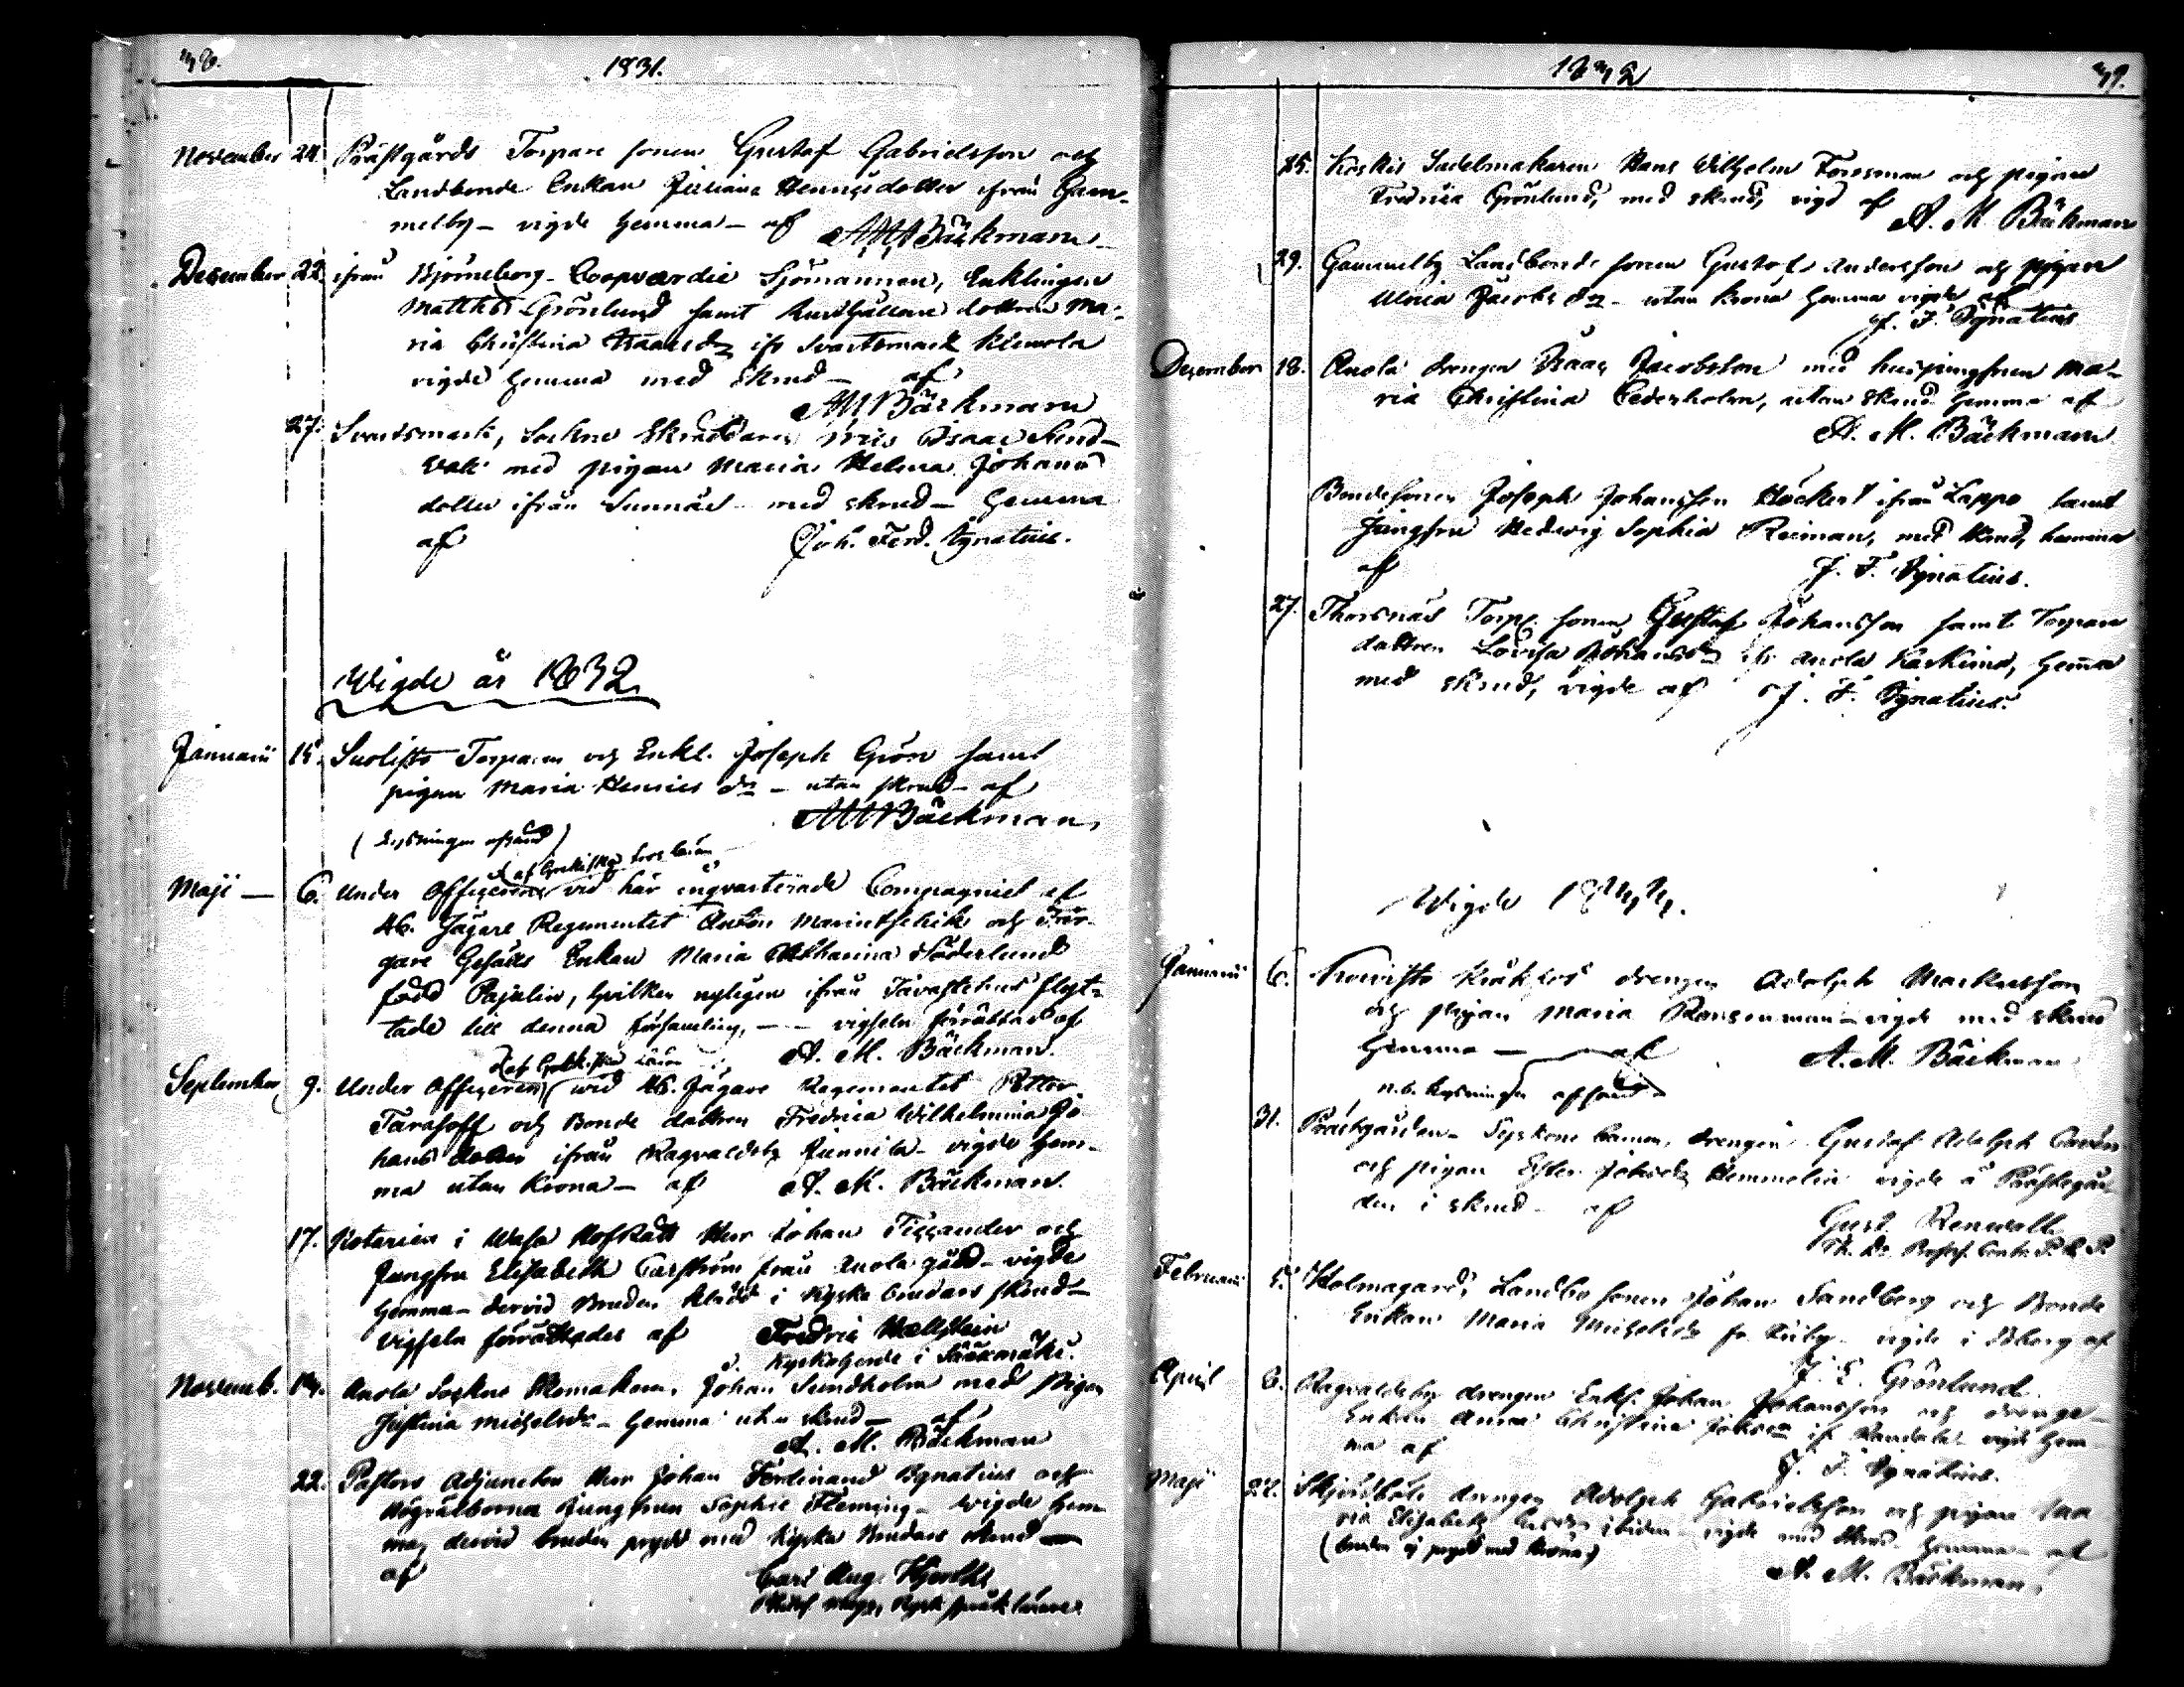 38.
1831.
November 24. Prästgårds Torpare sonen Gustaf Gabrielsson och
Landbonde Enkan Juliana Henricsdotter ifrån Gam-
melby - vigde hemma - af AM Bäckman
December 22. ifrån Björneborg Coopværdie Sjömannen, Enklingen
Matths Grönlund samt hushållare dottren Ma-
ria Christina ifr Svartsmark Klemola
vigde hemma med skrud - af
AM Bäckman
27. Svartsmark, Sockne Skräddaren Isaac Sund-
vall med pigan Maria Helena Johans
dotter ifrån Sunnäs - med skrud - hemma
af Joh. Ferd. Ignatius.
Wigde år 1832
Januarii 15. Suolisto Torparen och Enkl. Joseph Grön samt
pigan Maria Henrics dr - utan skrud - af
AM Bäckman
(Lysningen afsänd)
(af Grekiska Troslären
Maji - 6. Under Officeren vid här inqvarterade Compagniet af
46. Jägare Regementet Anton och Fär-
gare Gesälls Enkan Maria Catharina Söderlund
född Pajulin, hvilken nyligen ifrån Tavastehus flyt-
tade till denna församling, - - vigseln förrättad af
A. M. Bäckman.
(af Grekiska Läran
September 9. Under Officeren wid 46. Jägare Regementet Petter
Tarasoff och Bonde dottren Fredrica Wilhelmina Jo-
hans dotter ifrån Ragvaldsby Junnila - vigde hem-
ma utan Krona - af A. M. Bäckman.
17. Notarien i Wasa Hofrätt Herr Johan Tissander och
Jungfru Elisabeth Carström från Anola gård - vigde
hemma - dervid Bruden klädd i Kyrko brudars skrud -
vigseln förrättades af Fredric Wallstein
Kyrkoherde i Sääxmäki.
Novemb. 14. Anola Sockne Skomakaren, Johan Sundholm med Pigan
Justina Michelsdr - hemma utan skrud - af
A. M. Bäckman
22. Pastors Adjuncten Herr Johan Ferdinand Ignatius och
Högvälborna Jungfrun Sophie Fleming - wigde hem-
ma, dervid bruden prydd med Kyrko Brudars skrud -
af Carl Aug.
1832
39.
25. Koskis Sadelmakaren Hans Wilhelm Forsman och pigan
Fredrica Grönlund, med skrud, vigd af
A. M. Bäckman
29. Gammelby Landbonde sonen Gustaf Andersson och pigan
Ulrica Jacobs dr - utan krona hemma vigde af
J. F. Ignatius
December 18. Anola drengen Isaac Jacobsson med husjungfrun Ma-
ria Christina Cederholm, utan skrud hemma af
A. M. Bäckman
Bondesonen Joseph Johansson Höckert ifrån Lappo samt
Jungfru Hedwig Sophia Reiman, med skrud, hemma
af J. F. Ignatius.
27. Thorsnäs Torp. sonen Gustaf Johansson samt Torpare
dottren Lovisa Johansdr ifr Anola Kaskima, hemma
med skrud, vigde af J. F. Ignatius.
Wigde 1833.
Januarii 6. Koivisto drengen Adolph Markusson
och pigan Maria - vigde med skrud
hemma - af A. M. Bäckman
n.b. Lysningen afsänd
31. Prästgården - Syskone barnen, drengen Gustaf Adolph
och pigan Ester Jacobsdr Hemmelin vigde å Prästegår-
den i skrud - af
Gust. Renwall
Februarii 5. Holmagård, Landbo sonen Johan Sandberg och Bonde
Enkan Maria Michelsdr fr. - vigde i af
J. E. Grönlund
April 6. Ragvaldsby drengen Enkl. Johan Johansson och drenge-
Enkan Anna Christina Jacobsdr ifr - vigde hem-
ma af J. F. Ignatius.
Maji 27. drengen Adolph Gabrielsson och pigan Ma-
ria Elisabeth ibidem - vigde med skrud - hemma - af
(bruden ej prydd med krona) A. M. Bäckman,